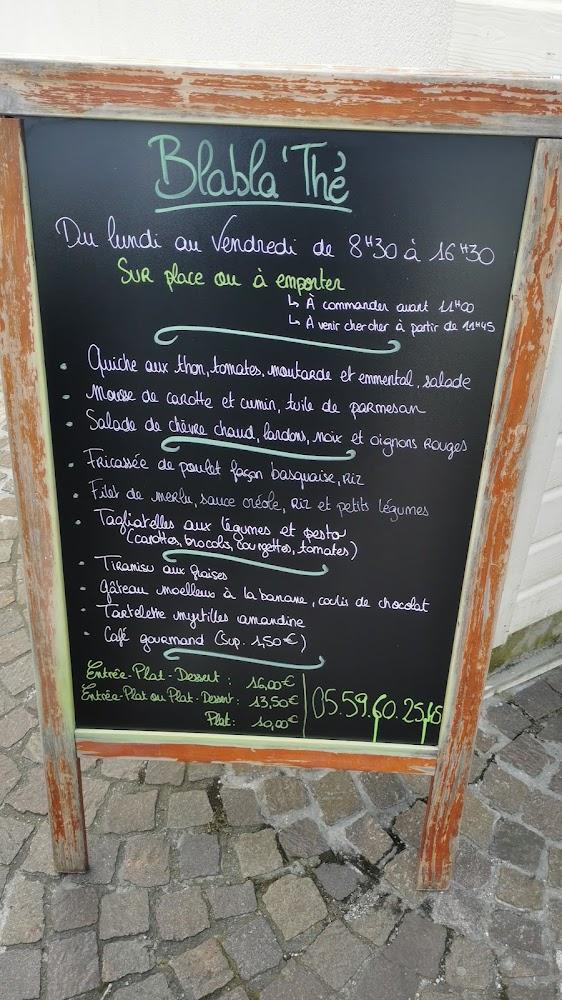 Blabla'Thé
Du lundi au Vendredi de 8H30 à 16H30
Sur place ou à emporter
↳ À commander avant 11H00
↳ À venir chercher à partir de 11H45
• Quiche aux thon, tomates, moutarde et emmental, salade
• Mousse de carotte et cumin, tuile de parmesan
• Salade de chèvre chaud, lardons, noix et oignons rouges
• Fricassée de poulet façon basquaise, riz
• Filet de merlu, sauce créole, riz et petits légumes
• Tagliatelles aux légumes et pesto
(carottes, brocolis, courgettes, tomates)
• Tiramisu aux fraises
• Gâteau moelleux à la banane, coulis de chocolat
• Tartelette myrtilles amandine
• Café gourmand (Sup. 1,50€)
Entrée-Plat-Dessert : 16,00€
Entrée-Plat ou Plat-Dessert : 13,50€
Plat : 10,00€
05.59.60.25.